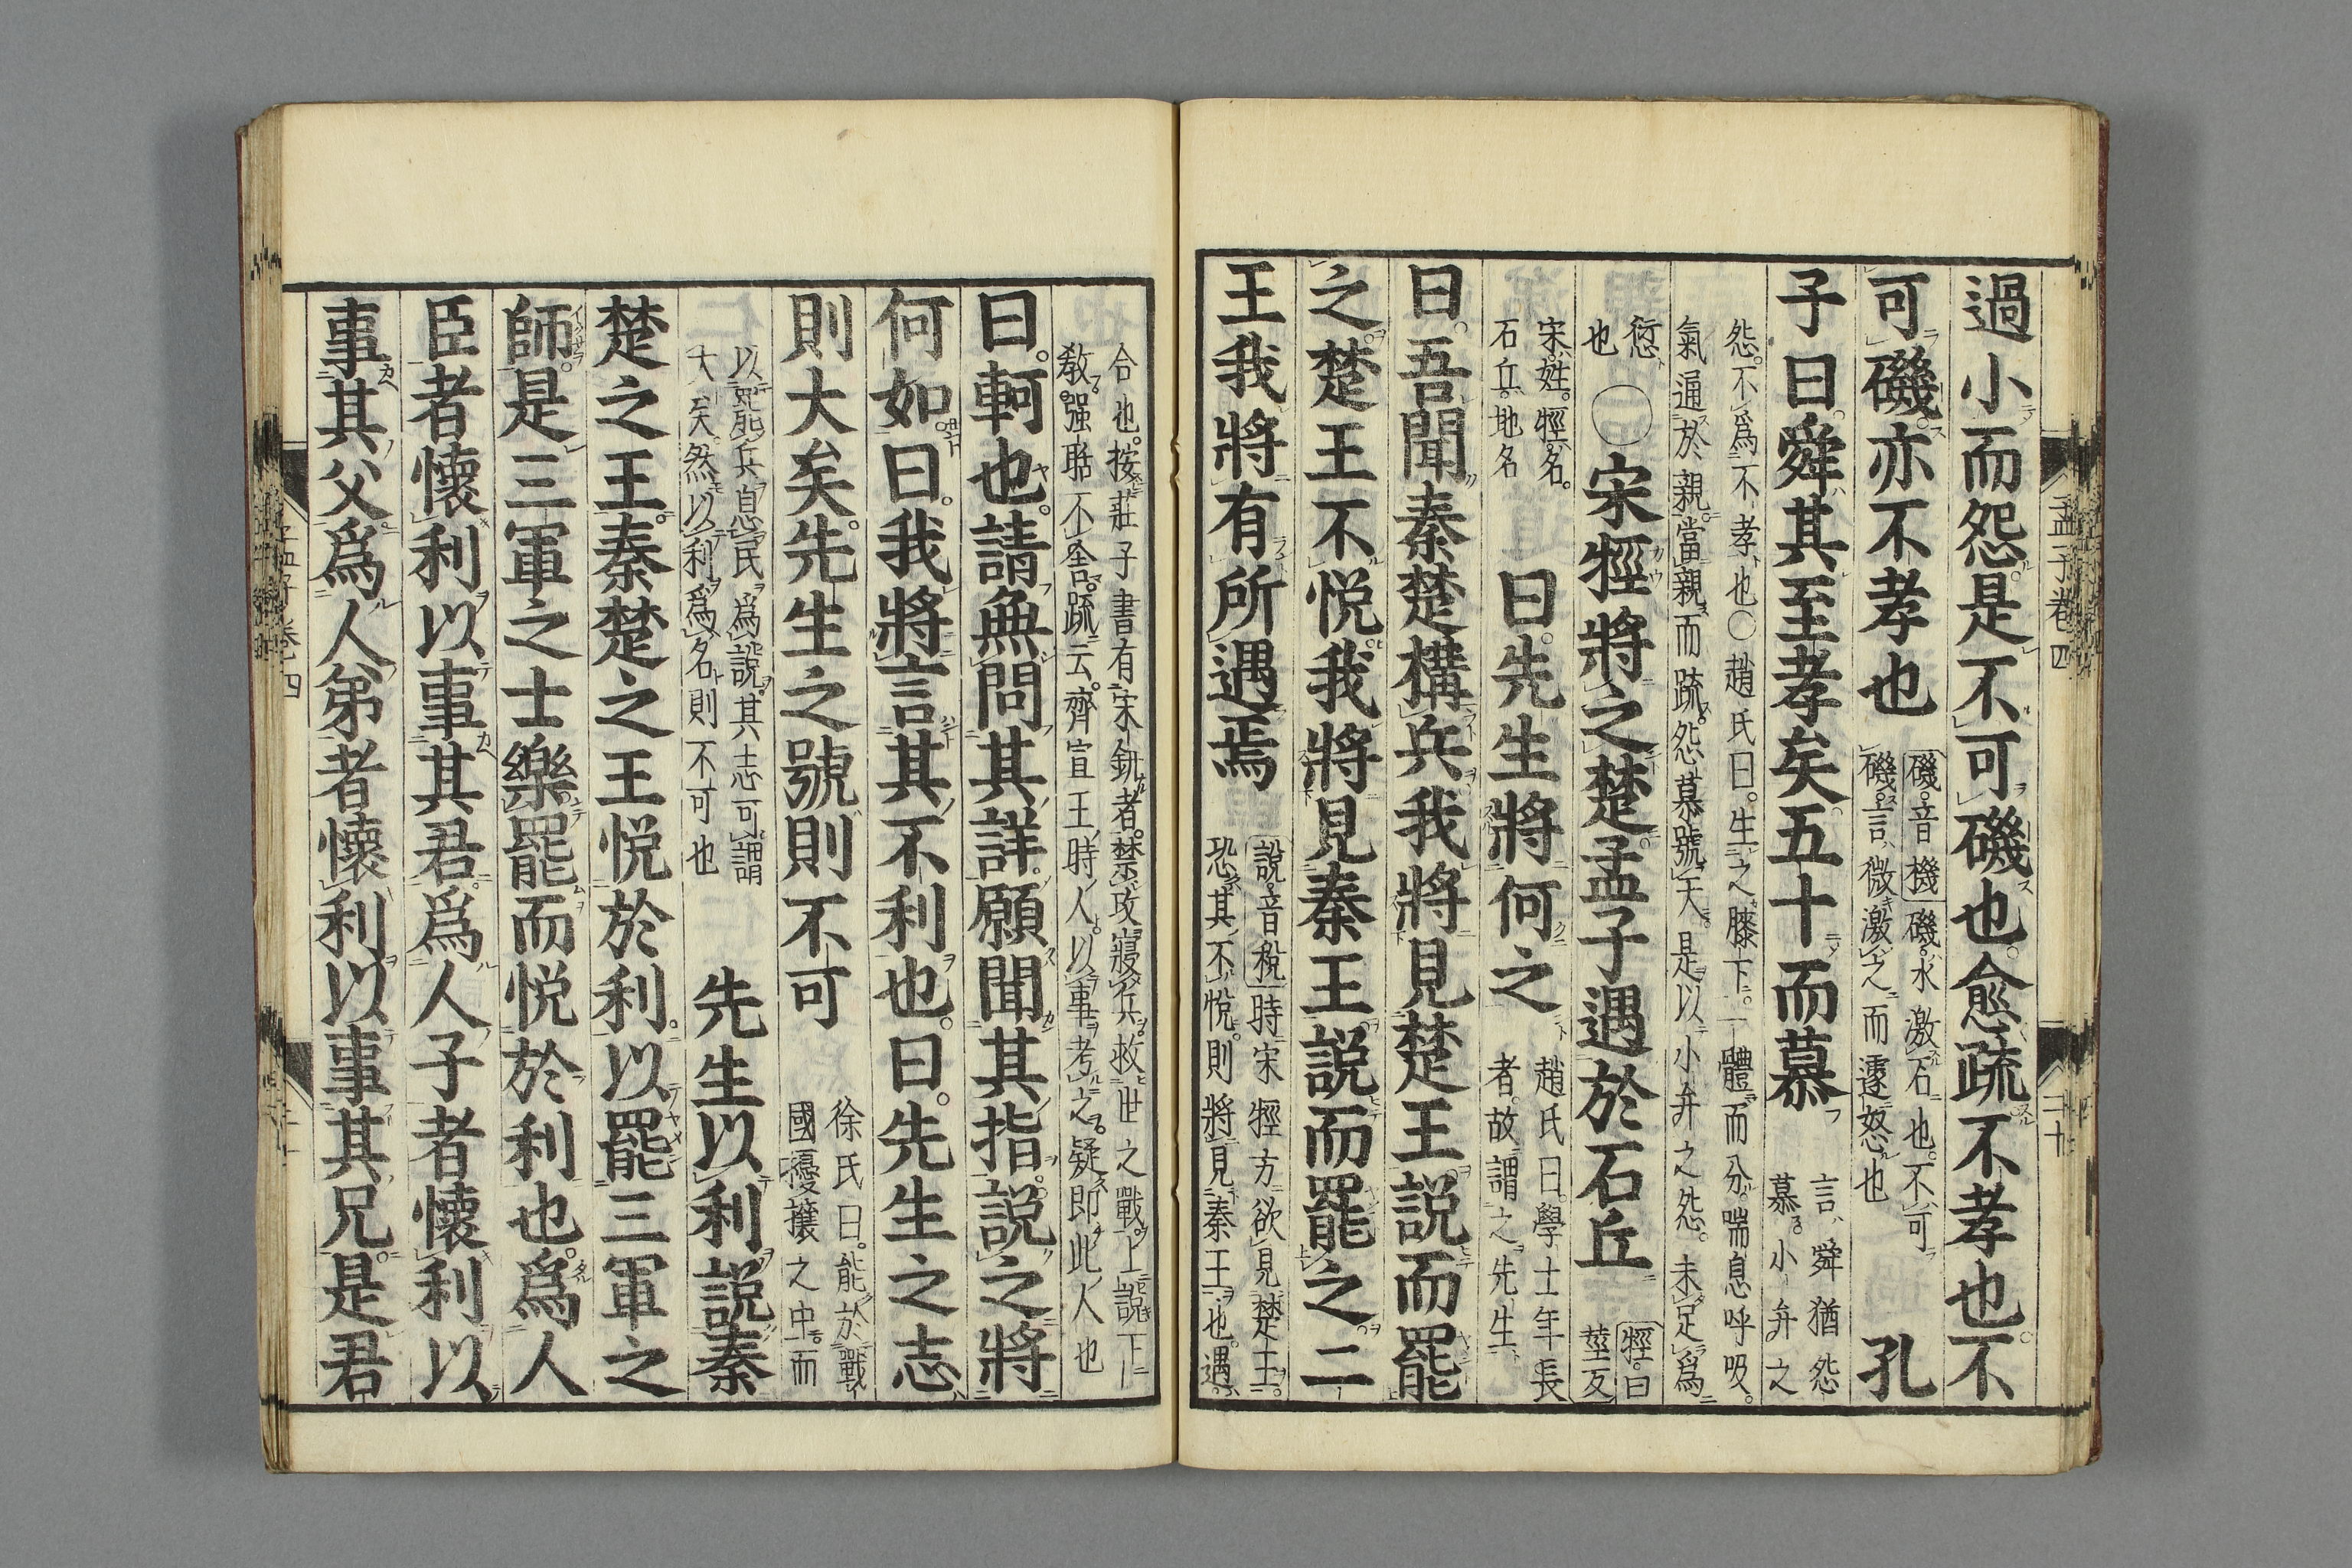 過小而怨是不可磯也愈疏不孝也不
可磯亦不孝也
磯音機磯水激石也不可
磯言微激之而遽怒也
孔
子曰舜其至孝矣五十而慕
言舜猶怨
慕小弁之
怨不爲不孝也○趙氏曰生之膝下一體而分喘息呼吸
氣通於親當親而疏怨慕號天是以小弁之怨未足爲
愆
也
○宋牼將之楚孟子遇於石丘
牼口
莖反
宋姓牼名
石丘地名
曰先生將何之
趙氏曰學士年長
者故謂之先生
曰吾聞秦楚構兵我將見楚王説而罷
之楚王不悦我將見秦王説而罷之二
王我將有所遇焉
説音稅時宋牼方欲見楚王
恐其不悅則將見秦王也遇
合也按莊子書有宋鈃者禁攻寢兵救世之戰上説下
敎强聒不舍疏云齊宣王時人以事考之疑即此人也
曰軻也請無問其詳願聞其指説之將
何如曰我將言其不利也曰先生之志
則大矣先生之號則不可
徐氏曰能於戰
國擾攘之中而
以罷兵息民爲説其志可謂
大矣然以利爲名則不可也
先生以利説秦
楚之王秦楚之王悦於利以罷三軍之
師是三軍之士樂罷而悦於利也爲人
臣者懷利以事其君爲人子者懷利以
事其父爲人弟者懷利以事其兄是君
孟子卷四
二十